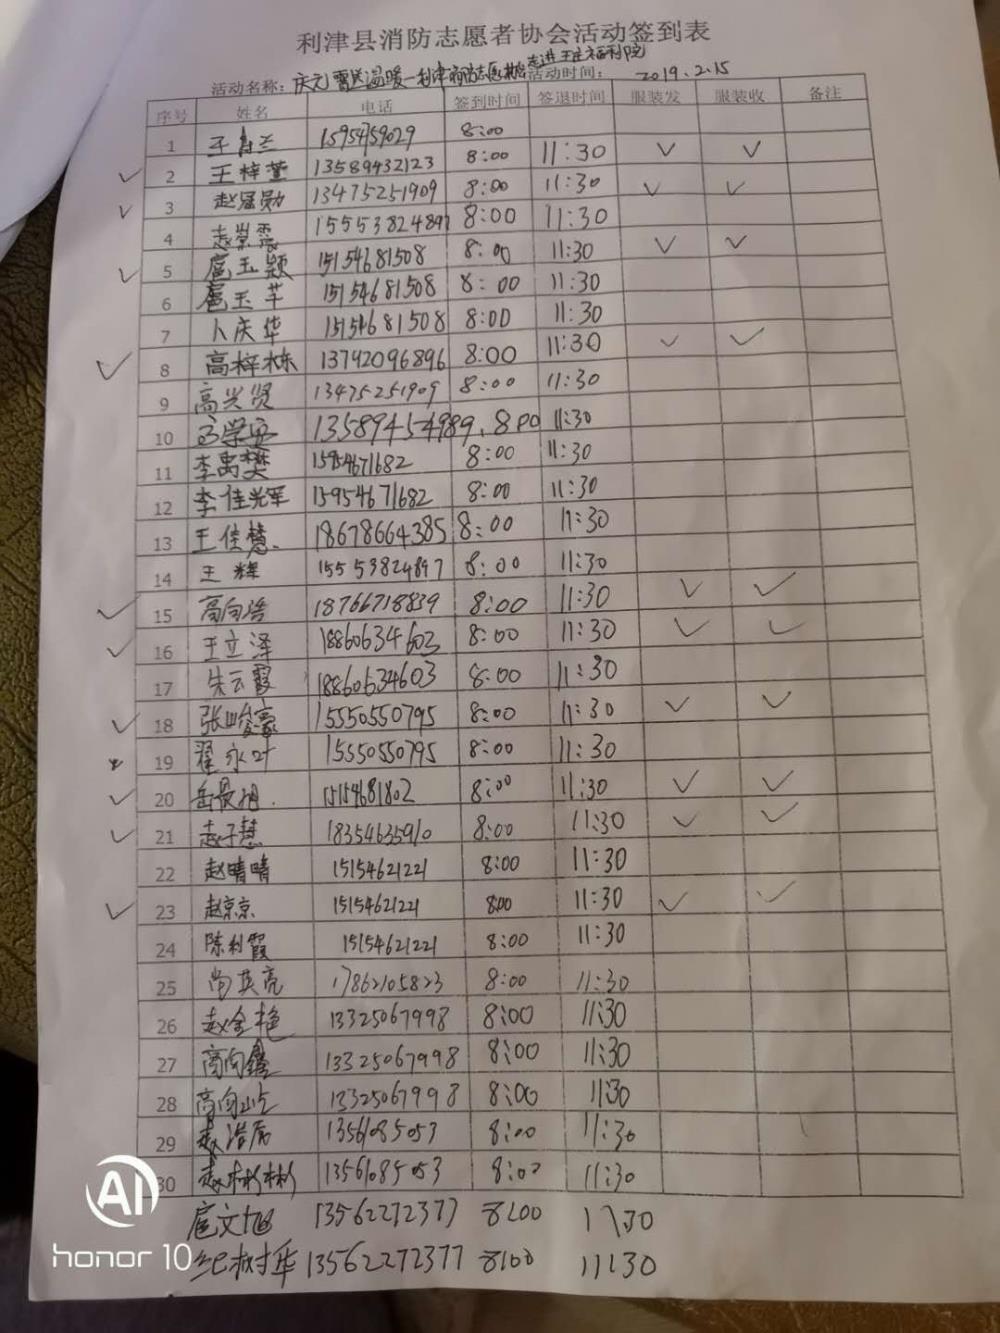 利津县消防志愿者协会活动签到表
活动名称：庆元宵送温暖—利津消防志愿 走进王庄福利院 活动时间： 2019.2.15
序号 姓名 电话 签到时间 签退时间 服装发 服装收 备注
1 王 兰 15954759029 8:00
✓ 2 王梓萱 13589432123 8:00 11:30 ✓ ✓
✓ 3 赵冠勋 13475251909 8:00 11:30 ✓ ✓
4 赵 霞 15553824897 8:00 11:30
✓ 5 扈玉颖 15154681508 8:00 11:30 ✓ ✓
6 扈玉芊 15154681508 8:00 11:30
7 卜庆华 15154681508 8:00 11:30
✓ 8 高梓栋 13792096896 8:00 11:30 ✓ ✓
9 高兴贤 13475251909 8:00 11:30
10 13589454989 8:00 11:30
11 李禹樊 15954671682 8:00 11:30
12 李佳 军 15954671682 8:00 11:30
13 王佳慧 18678664385 8:00 11:30
14 王辉 15553824897 8:00 11:30
✓ 15 高向浩 18766718839 8:00 11:30 ✓ ✓
✓ 16 王立泽 18860634603 8:00 11:30 ✓ ✓
17 朱云霞 18860634603 8:00 11:30
✓ 18 张峻豪 15550550795 8:00 11:30 ✓ ✓
19 翟永叶 15550550795 8:00 11:30
✓ 20 岳晨旭 15154681802 8:00 11:30 ✓ ✓
✓ 21 赵子慧 18354635910 8:00 11:30 ✓ ✓
22 赵晴晴 15154621221 8:00 11:30
✓ 23 赵京京 15154621221 8:00 11:30 ✓ ✓
24 陈利霞 15154621221 8:00 11:30
25 尚英亮 17862105823 8:00 11:30
26 赵金艳 13325067998 8:00 11:30
27 高向鑫 13325067998 8:00 11:30
28 高向屹 13325067998 8:00 11:30
29 赵浩 13561085053 8:00 11:30
30 赵彬彬 13561085053 8:00 11:30
扈文旭 13562272377 8:00 11:30
纪树华 13562272377 8:00 11:30
AI
honor 10